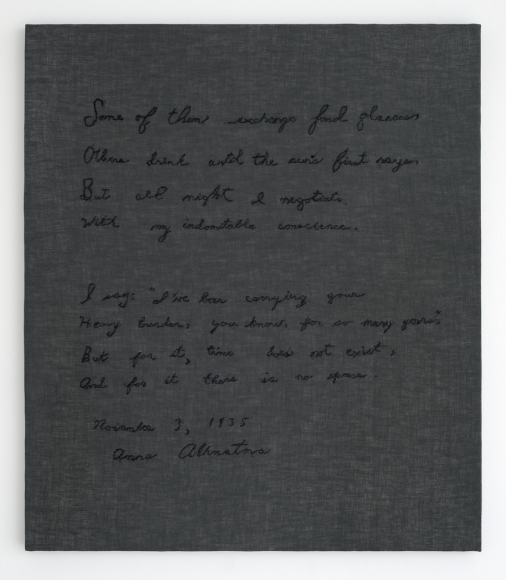 Some of them exchange fond glances
Others drink until the sun's first rays
But all night I negotiate
With my indomitable conscience.
I say: "I've been carrying your
Heavy burden, you know, for so many years."
But for it, time does not exist,
And for it there is no space.
November 3, 1935
Anna Akhmatova